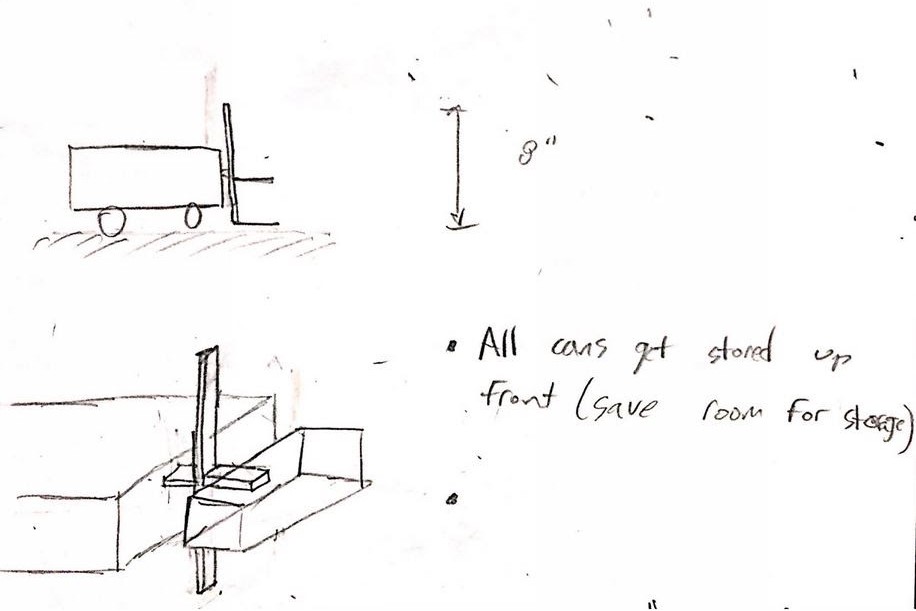 8"
• All cans get stored up
front (save room for storage)
•